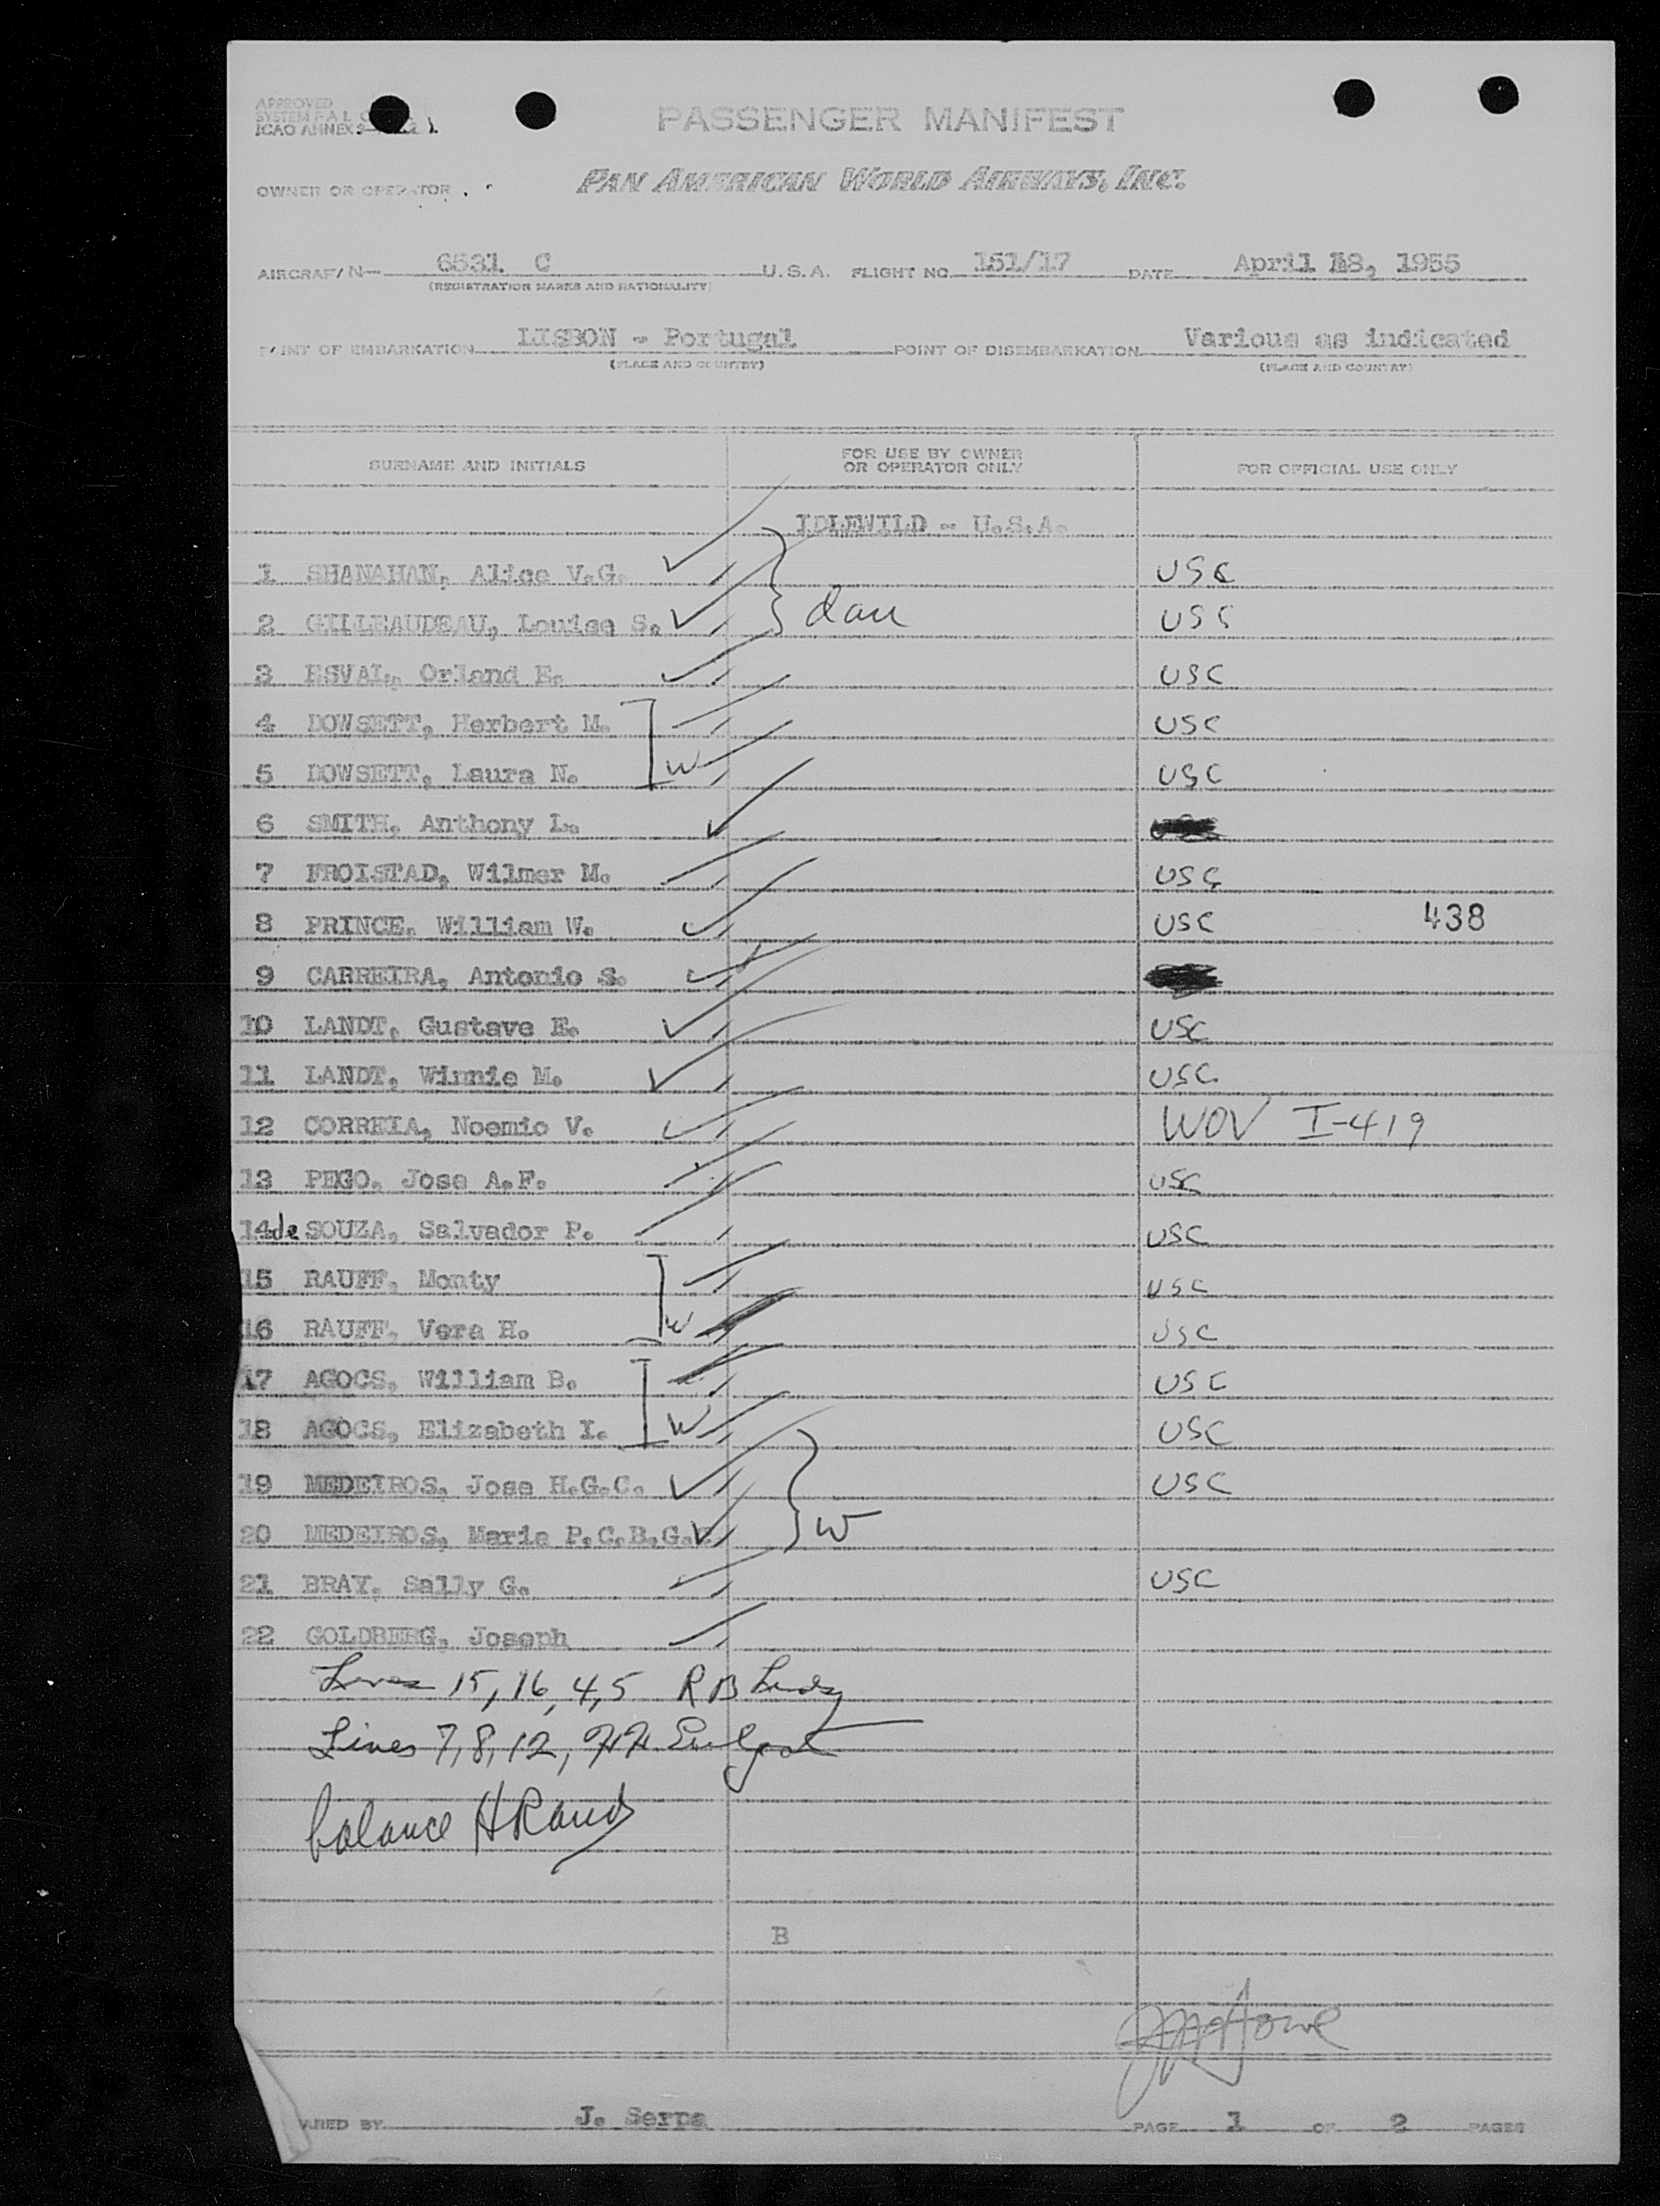 APPROVED
SYSTEM F A L
ICAO ANNEX 9
PASSENGER MANIFEST
OWNER OR OPERATOR
PAN AMERICAN WORLD AIRWAYS, INC.
AIRCRAFT N- 6531 C U.S.A. FLIGHT NO. 151/17 DATE April 18, 1955
(REGISTRATION MARKS AND NATIONALITY)
POINT OF EMBARKATION LISBON - Portugal POINT OF DISEMBARKATION Various as indicated
(PLACE AND COUNTRY) (PLACE AND COUNTRY)
SURNAME AND INITIALS FOR USE BY OWNER OR OPERATOR ONLY FOR OFFICIAL USE ONLY
IDLEWILD - U.S.A.
1 SHANAHAN, Alice V.G. USC
2 GILLEAUDEAU, Louise S. dau USC
3 ESVAL, Orland E. USC
4 DOWSETT, Herbert M. USC
5 DOWSETT, Laura N. W USC
6 SMITH, Anthony L.
7 FROISTAD, Wilmer M. USC
8 PRINCE, William W. USC 438
9 CARREIRA, Antonio S.
10 LANDT, Gustave E. USC
11 LANDT, Winnie M. USC
12 CORREIA, Noemio V. WOV I-419
13 PEGO, Jose A.F. USC
14 de SOUZA, Salvador P. USC
15 RAUFF, Monty USC
16 RAUFF, Vera H. W USC
17 AGOCS, William B. USC
18 AGOCS, Elizabeth I. W USC
19 MEDEIROS, Jose H.G.C. USC
20 MEDEIROS, Maria P.C.B.G. W
21 BRAY, Sally G. USC
22 GOLDBERG, Joseph
Lines 15, 16, 4, 5 R B
Lines 7, 8, 12,
balance H Rand
B
PREPARED BY J. Serpa PAGE 1 OF 2 PAGES